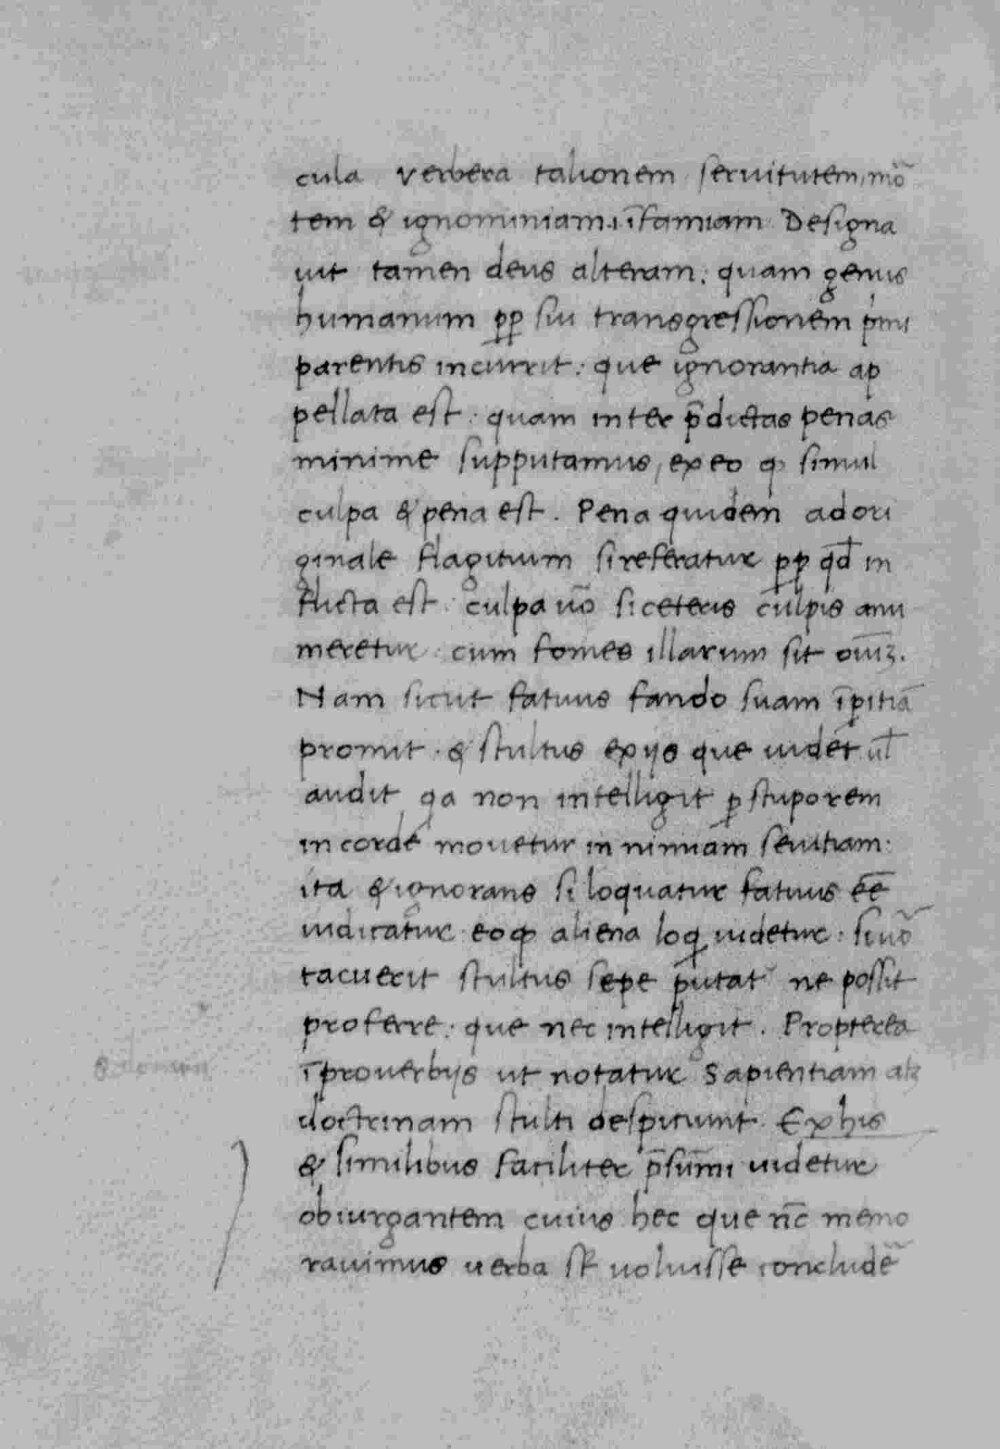 cula verbera talionem seruitutem, mõ
tem & ignominiam. ĩfamiam Designa
uit tamen deus alteram: quam genus
humanum pp siu transgressionem pĩmi
parentis incurrit: que ignorantia ap
pellata est. quam inter p̃dictas penas
minime supputamus, ex eo ꝙ simul
culpa & pena est. Pena quidem ad ori
ginale flagitium si referatur pp qd̃ in
flicta est: culpa uõ si ceteris culpis annu
meretur. cum fomes illarum sit oĩuꝫ.
Nam sicut fatuus fando suam ĩpitiã
promit. & stultus ex ijs que uidet ul̃
audit qa non intelligit ꝑ stuporem
in corde mouetur in nimiam seuitiam:
ita & ignorans si loquatur fatuus eẽ
iudicatur eoꝙ aliena loqi uidetur: si uõ
tacuerit stultus sepe putat᷑ ne possit
proferre: que nec intelligit. Propterea
ĩ prouerbijs ut notatur Sapientiam atꝫ
doctrinam stulti despiciunt. Ex his
& similibus faciliter p̃sũmi uidetur
obiurgantem cuius hec que nc̃ memo
rauimus uerba st̃ uoluisse concludẽ